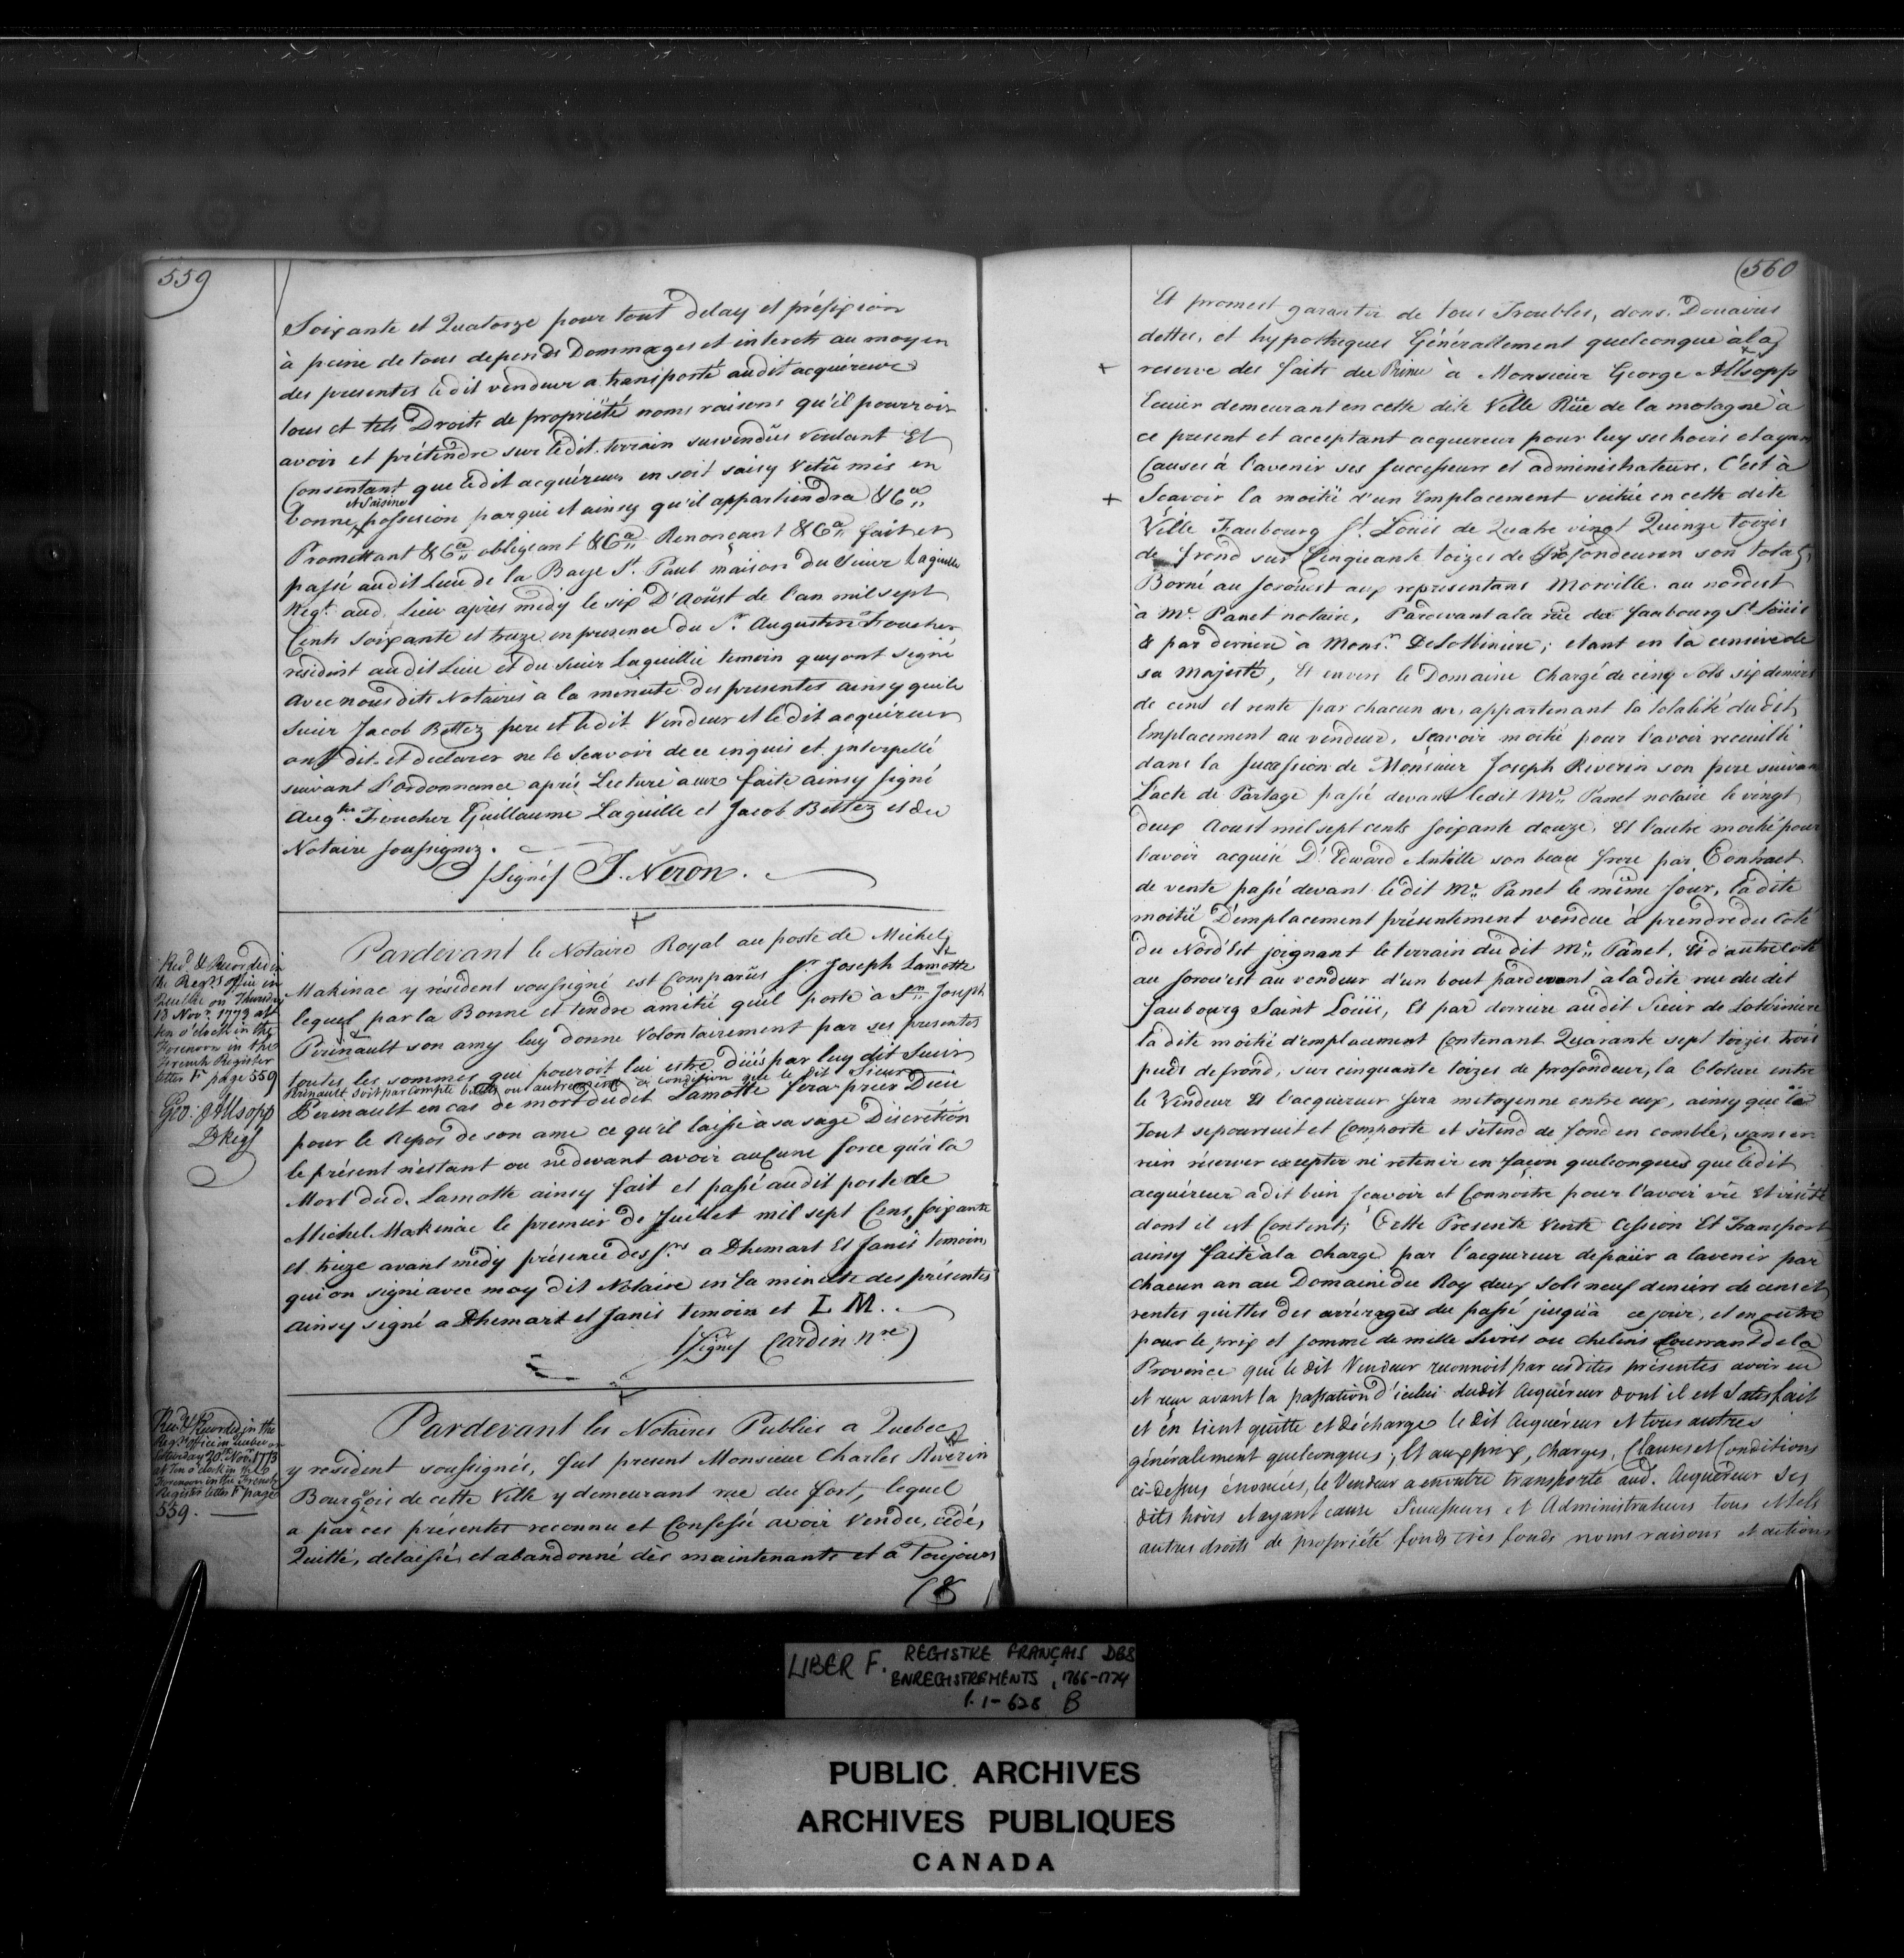 559
Soixante et Quatorze pour tout delay et préfixion
à peine de tous depends Dommages et interets au moyen
des presentes ledit vendeur a transporté audit acquéreur
tous et tels Droits de propriété noms raisons qu'il pourroit
avoir et prétendre sur ledit terrain susvendüs voulant Et
Consentant que ledit acquéreur en soit saisy Vetû mis en
et Saisine
bonne possesion par qui et ainsy qu'il appartiendra &Ca
Promettant &Ca obligeant &Ca Renonçant &Ca fait et
passé audit Lieu de la Baye St. Paul maison du Sieur Laguille
Negt. aud. Lieu après midy le six D'Aoüst de l'an mil sept
Cents soixante et treize en presence du Sr. Augustin Foucher
résident audit Lieu et du Sieur Laguillie temoin quy ont signé
avec nous dits Notaires à la minute des presentes ainsy que le
Sieur Jacob Bettez pere et ledit Vendeur et ledit acquéreur
ont dit et declarer ne le Sçavoir de ce inquis et interpellé
suivant L'Ordonnance aprés Lecture à eux faite ainsy signé
Augtin. Foucher Guillaume Laguille et Jacob Bettez et du
Notaire soussignez.
/Signé/ J. Néron.
Recd. & Recorded in
the Regrs. office in
Quebec on Thursday
18 Novr. 1773 at
ten o'clock in the
Forenoon in the
French Register
letter F. page 559
Geo: Allsopp
DRegr
Pardevant le Notaire Royal au poste de Michely
Makinac y résident soussigné est Comparüs Sr. Joseph Lamotte
lequel par la Bonne et tendre amétié quil porte à Sr. Joseph
Perinault son amy luy donne Volontairement par ses presentes
toutes les sommes qui pouroit lui estre düés par luy dit Sieur
Perinault soit par Compte billets ou autrement a condition que le dit Sieur
Perinault en cas de mort dudit Lamotte fera prier Dieu
pour le Repos de son ame ce qu'il laisse à sa sage Discrétion
le présent n'estant ou ne devant avoir aucune force qu'à la
Mort dud. Lamotte ainsy fait et passé audit poste de
Michel Makinac le premier de Juillet mil sept Cens soixante
et treize avant midy présence des Srs a Dhemart Et Janis temoins
qui on signé avec moy dit Notaire en la minute des présentes
ainsy signé a Dhemart et Janis temoin et L M.
/Signé/ Cardin nre)
Recd. & Recorded in the
Regrs. office in Quebec on
Saturday 20th. Novr. 1773
at Ten o'clock in the
Forenoon in the French
Register letter F page
559.
Pardevant les Notaires Publics a Quebec
y résident soussignés, fut present Monsieur Charles Riverin
Bourgois de cette Ville y demeurant rue du fort, lequel
a par ces présentes reconnu et Confessé avoir Vendu, cédé,
Quitté, delaissé, et abandonné dès maintenant et à Toujours
560
Et promest garantir de tous Troubles, dons, Douaires
dettes, et hypotheques Généralement quelconque à la
reserve des faits du Prince à Monsieur George Allsopp
Ecuier demeurant en cette dite Ville Rüe de la motagne à
ce present et acceptant acquereur pour luy ses hoirs et ayans
Causes à l'avenir ses successeurs et administrateurs, C'est à
Sçavoir la moitié d'un Emplacement scitué en cette dite
Ville Faubourg St. Loüis de Quatre vingt Quinze toizes
de frond sur Cinquante toizes de profondeur en son total,
Borné au sorouest aux representans Morville, au nordest
à Mr. Panet notaire, Pardevant a la rüe du faubourg St. Loüis
& par derriere à Monsr. DeLotbiniere; etant en la censive de
sa majesté, Et envers le Domaine Chargé de cinq sols six deniers
de cens et rente par chacun an, appartenant la totalité dudit
Emplacement au vendeur, Sçavoir moitié pour l'avoir recueilli
dans la Succession de Monsieur Joseph Riverin son pere suivan
L'acte de Partage passé devant ledit Mr. Panet notaire le vingt
deux Aoust mil sept cents soixante douze, Et l'autre moitié pour
l'avoir acquise D'. Edward Antille son beau frere par Contract
de vente passé devant ledit Mr. Panet le même Jour, la dite
moitié D'emplacement présentement vendue à prendre du Coté
du Nord Est joignant le terrain du dit Mr. Panet, Et d'autre coté
au sorou'est au vendeur d'un bout pardevant à la dite rue du dit
faubourg Saint Loüis, Et par derriere audit Sieur de Lotbiniere
la dite moitié d'emplacement Contenant Quarante sept toizes trois
pieds de frond, sur cinquante toizes de profondeur, la Cloture entre
le Vendeur Et l'acquereur sera mitoyenne entre eux, ainsy que le
Tout se poursuit et Comporte et s'étend de fond en comble, sans en
rien réserver excepter ni retenir en façon quelconques que ledit
acquéreur a dit bien sçavoir et Connoitre pour l'avoir vu Et visité
dont il est Content; Cette Presente Vente Cession Et Transport
ainsy faite à la Charge par l'acquereur de païer a lavenir par
Chacun an au Domaine du Roy deux sols neuf deniers de cens et
rentes quittes des arrérages du passé jusqu'à ce jour, et en outre
pour le prix et somme de mille Livres ou chelins Courrant de la
Province que le dit Vendeur reconnoit par cesdites présentes avoir eu
et reçu avant la passation d'icelui dudit Acquéreur dont il est Satisfait
et en tient quitte et décharge le dit Acquéreur et tous autres
généralement quelconques, Et aux prix, Charges, Clauses et Conditions
ci-dessus énoncées, le Vendeur a en outre transporté aud. Acquéreur Ses
dits hoirs et ayant cause Successeurs et Administrateurs tous et tels
autres droits de propriété fonds très fonds noms raisons et actions
LIBER F. REGISTRE FRANÇAIS DES
ENREGISTREMENTS, 1766-1774
P. 1-628 B
PUBLIC ARCHIVES
ARCHIVES PUBLIQUES
CANADA